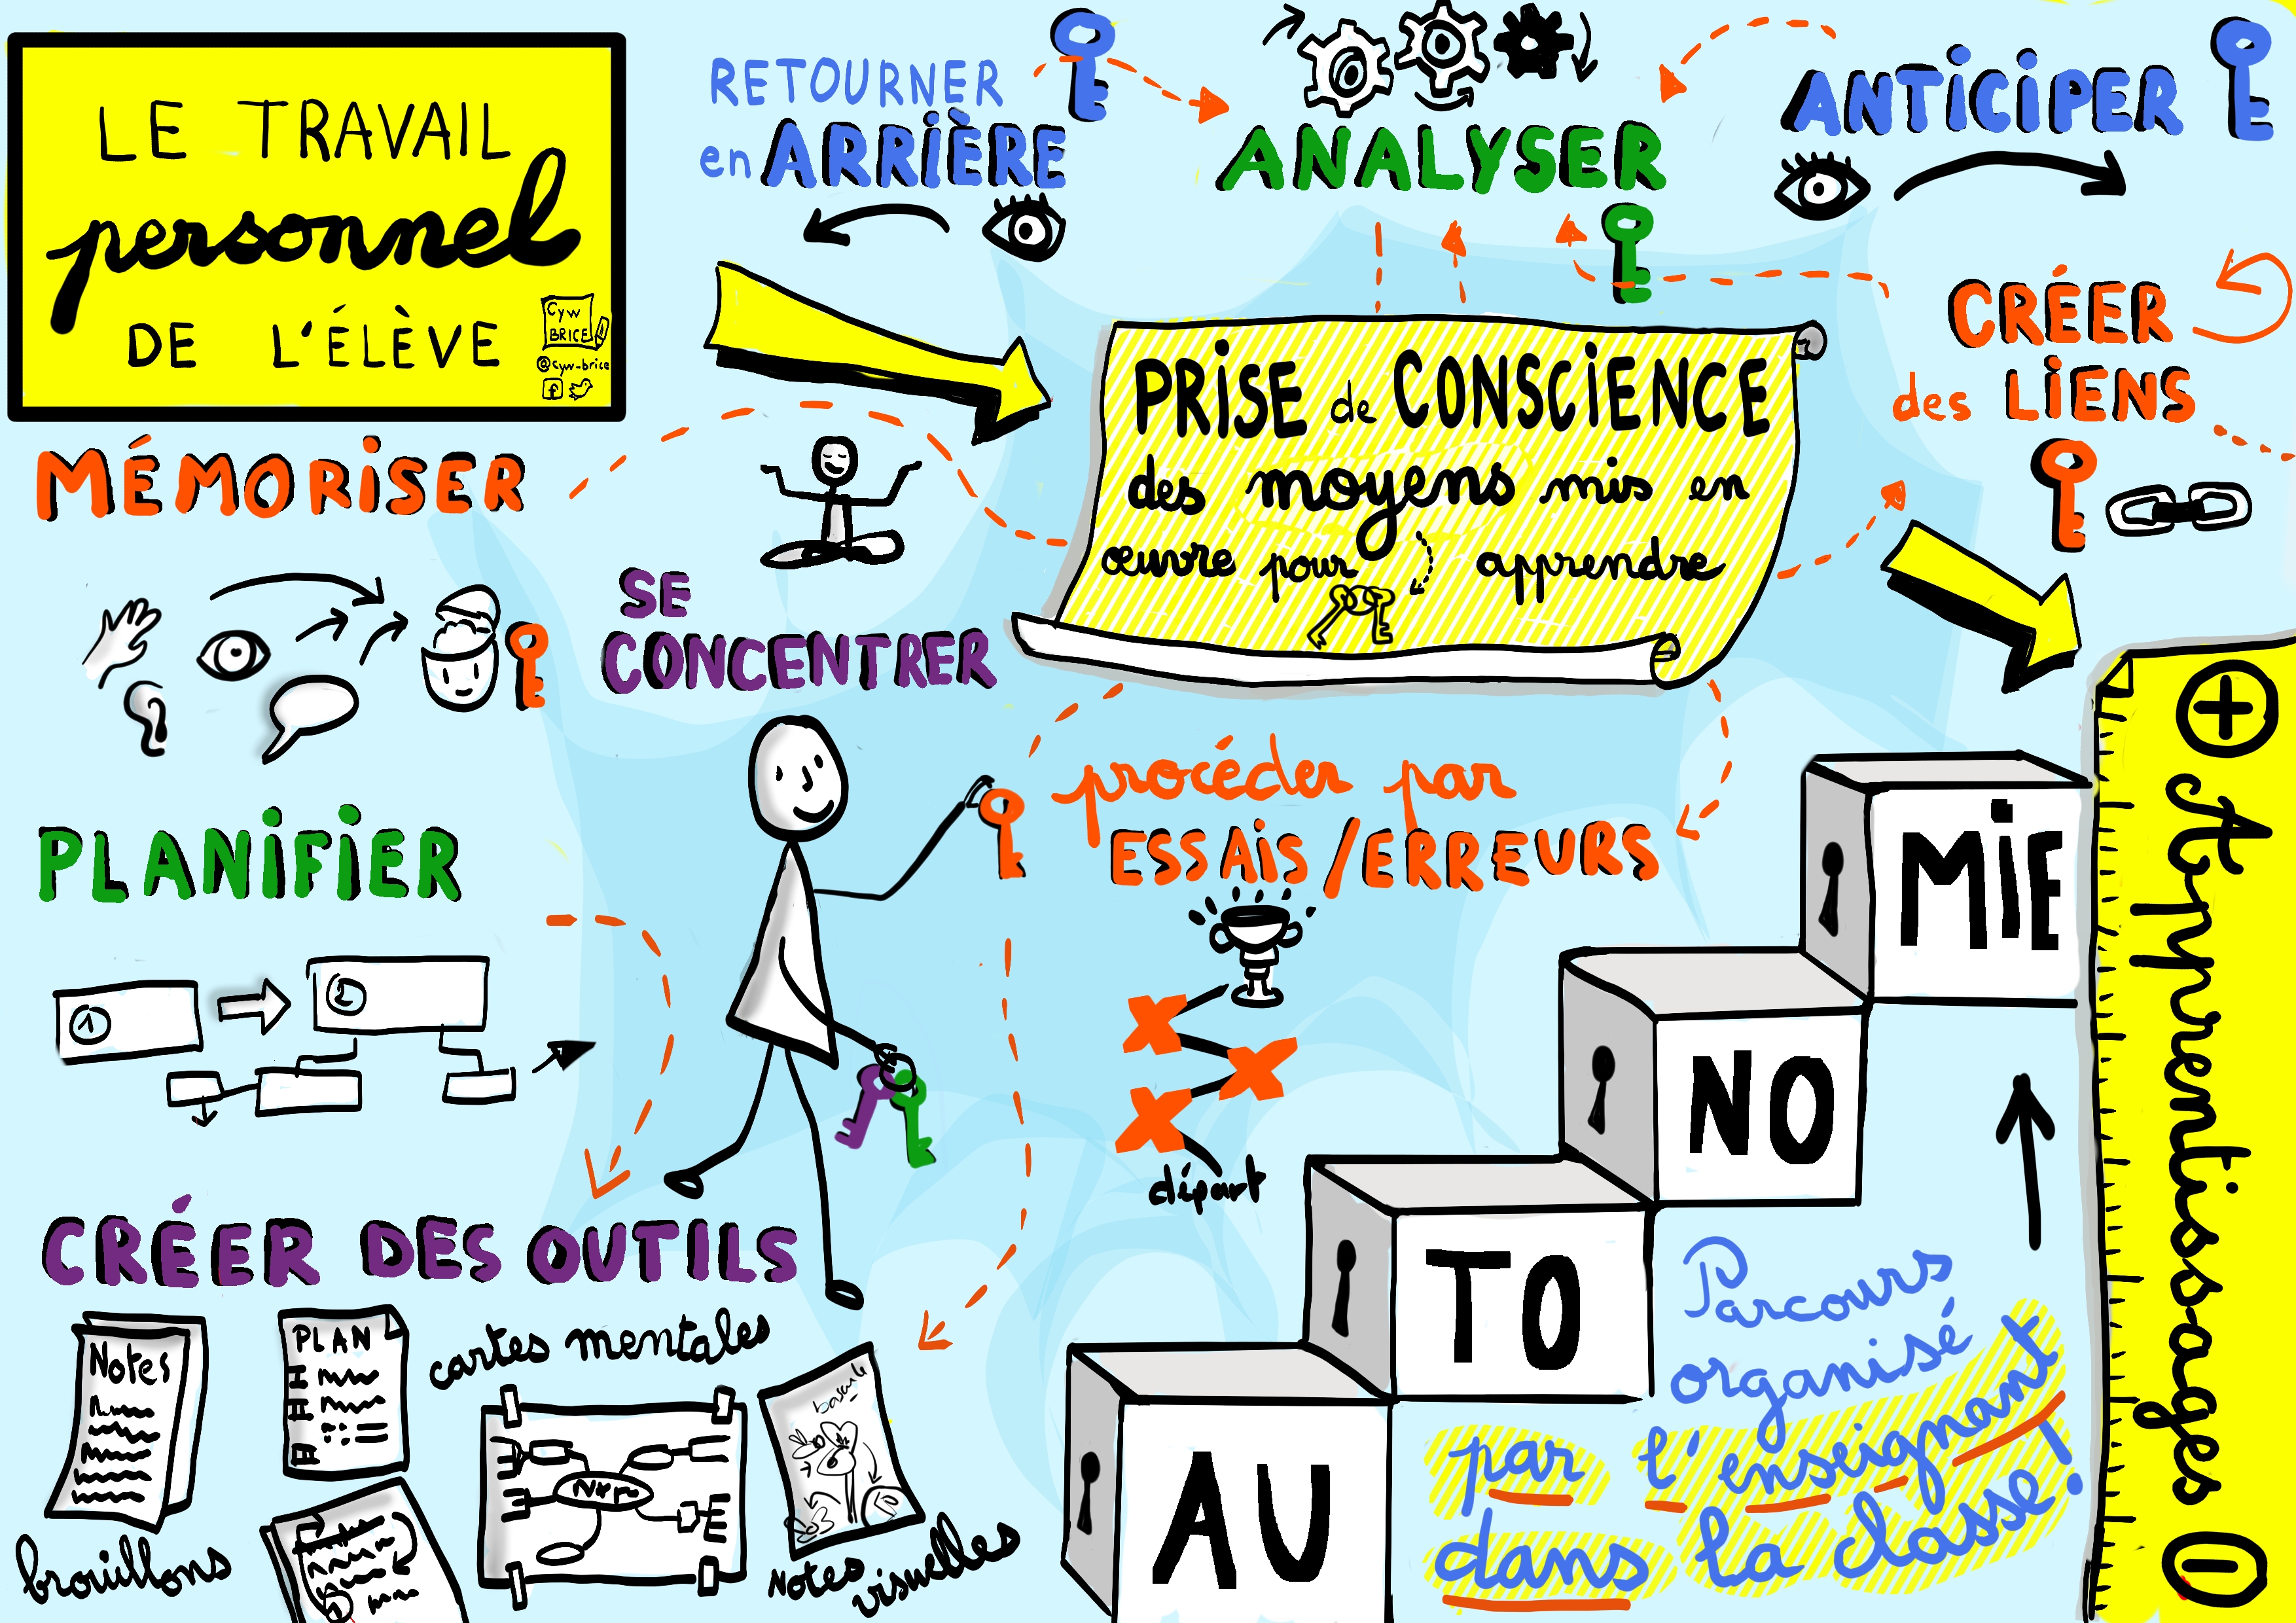 LE TRAVAIL
personnel
DE L'ÉLÈVE
Cyw
BRICE
@cyw-brice
RETOURNER
en ARRIÈRE
ANALYSER
ANTICIPER
CRÉER
des LIENS
PRISE de CONSCIENCE
des moyens mis en
œuvre pour apprendre
MÉMORISER
SE
CONCENTRER
PLANIFIER
1
2
procéder par
ESSAIS/ERREURS
départ
CRÉER DES OUTILS
Notes
brouillons
PLAN
I
II
III
cartes mentales
Notes
visuelles
AU
TO
NO
MIE
Parcours
organisé
par l'enseignant
dans la classe!
+ Apprentissages -